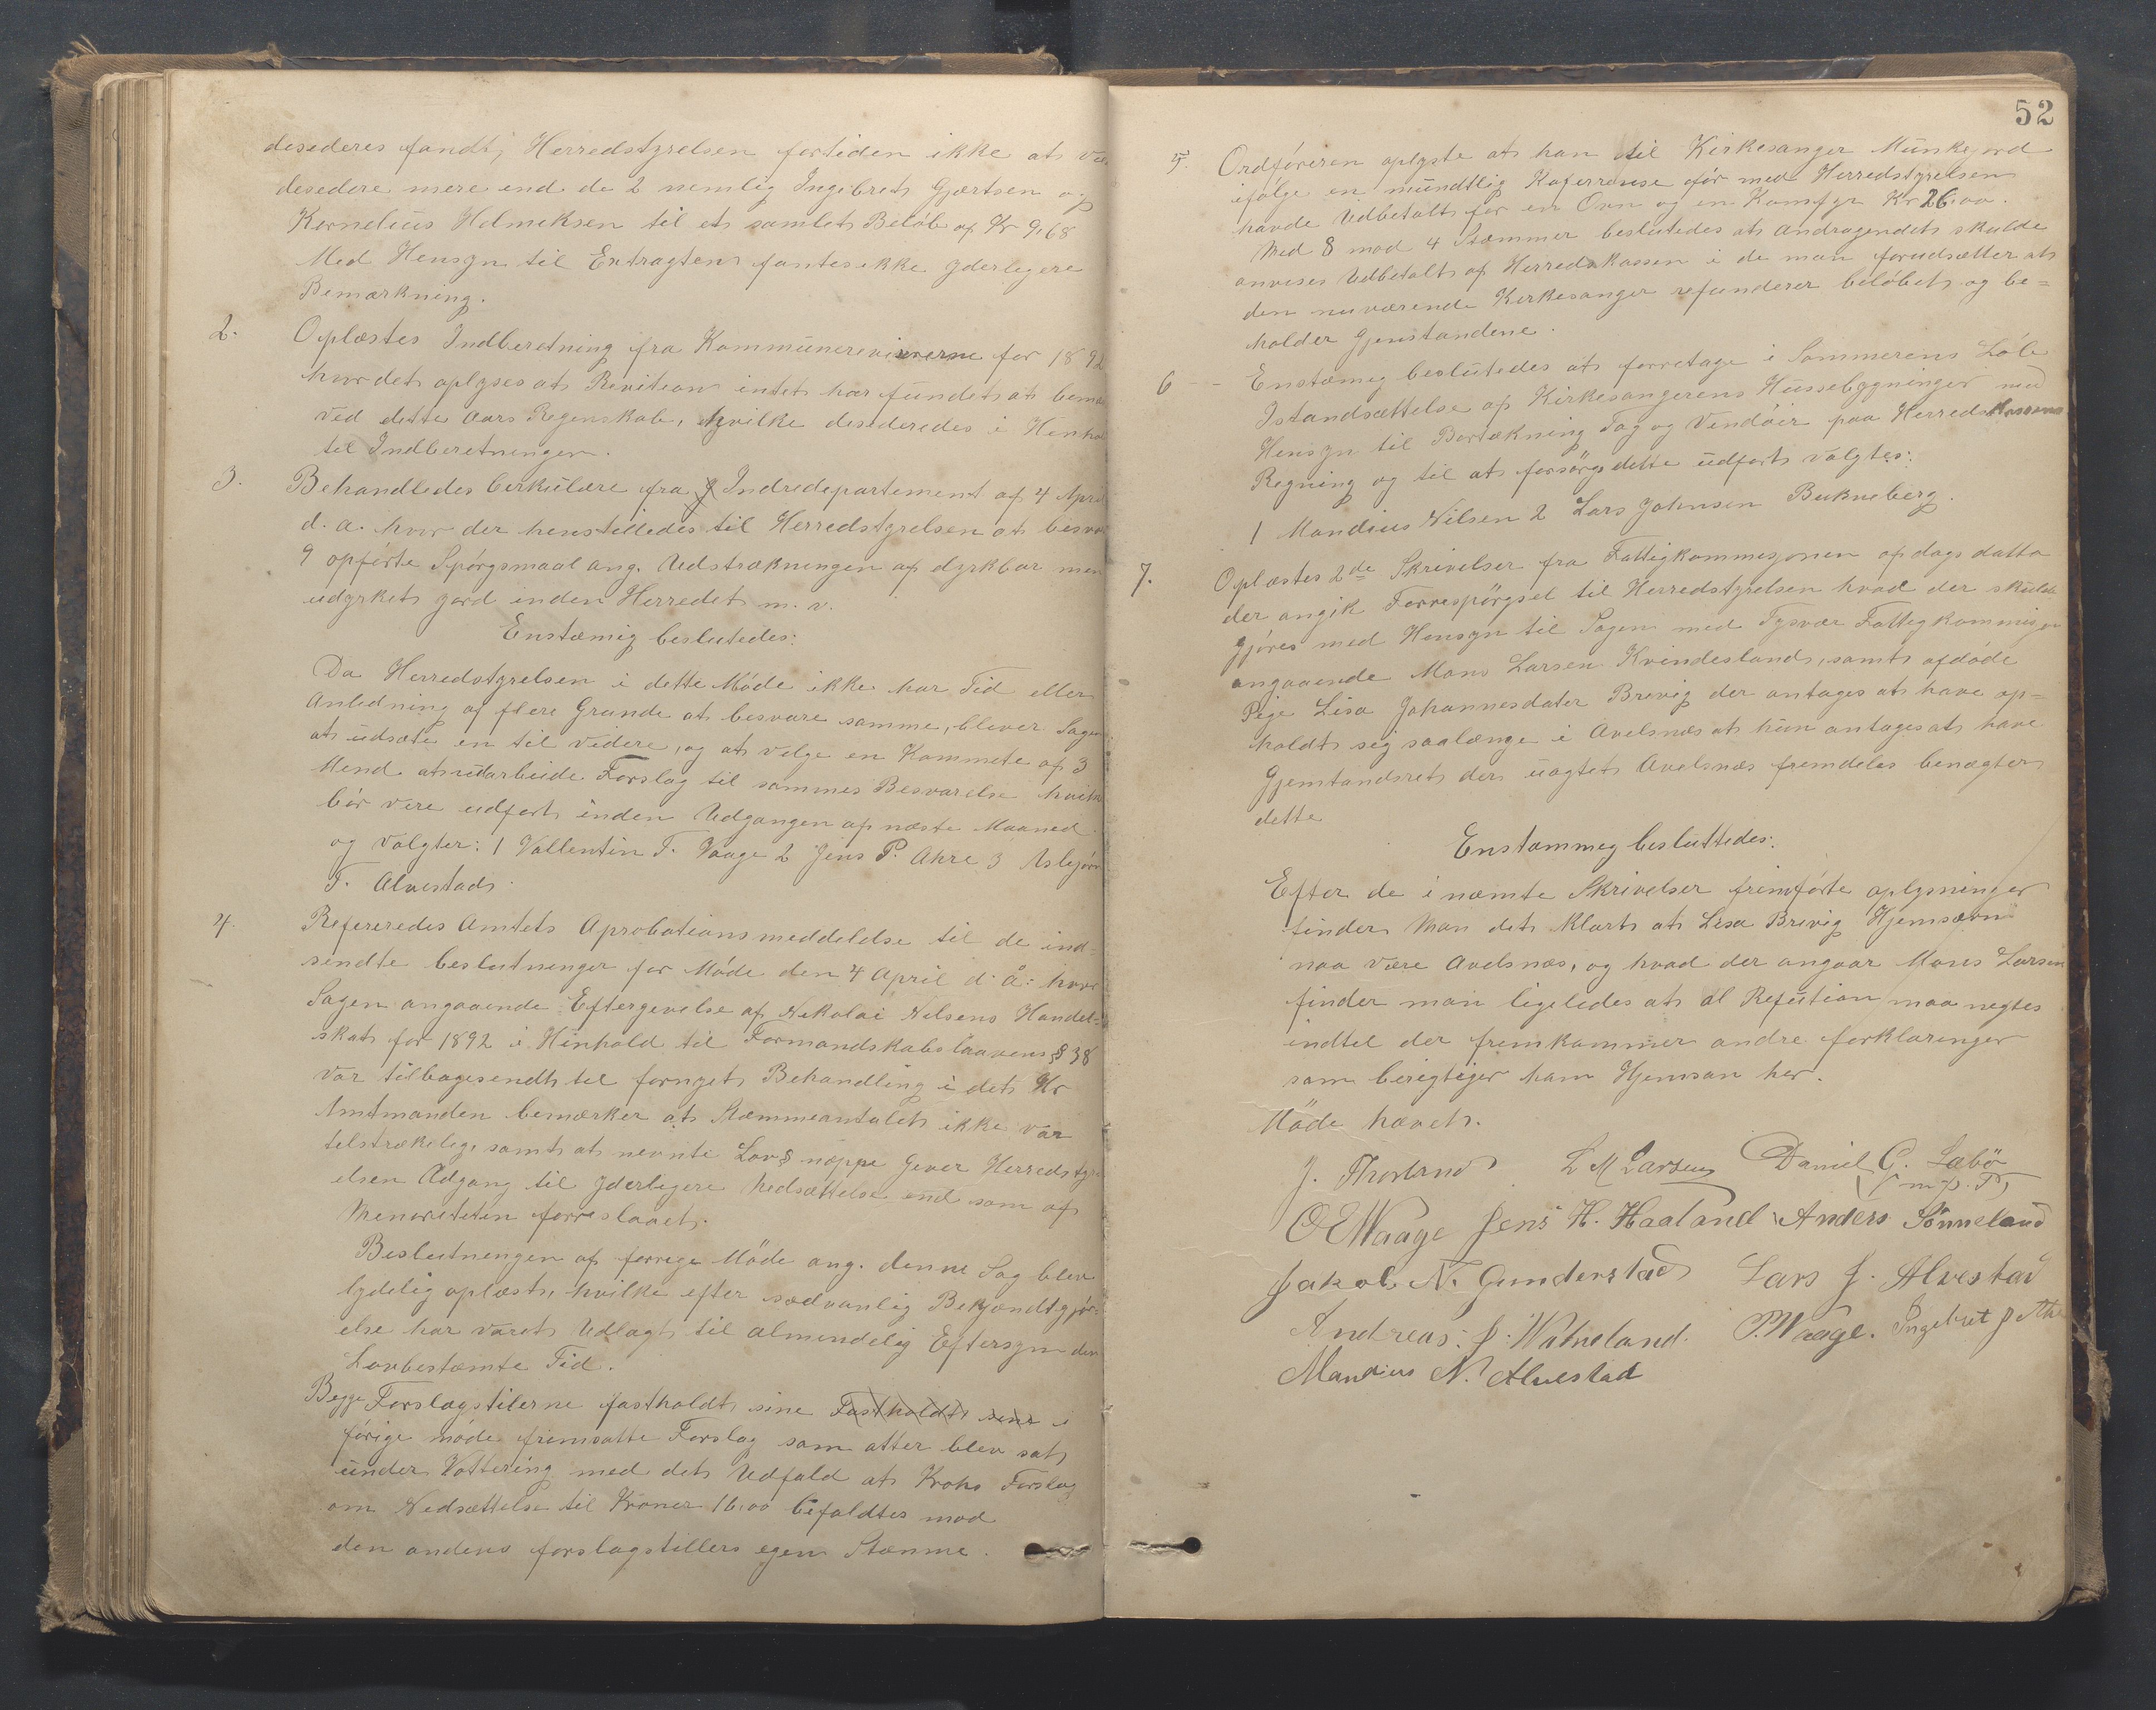 desederes fandt, Herredstyrelsen fortiden ikke at
desedere mere end de 2 nemlig Ingebret Gjertsen og
Kornelius Helmiksen til et samlet Beløb af Kr 9,68
Med Hensyn til Extragten fantes ikke yderligere
Bemærkning.
2. Oplæstes Indberetning fra Kommunerevisorerne for 1892
hvor det oplyses at Revition intet har fundet at bem
ved dette Aars Regenskab, hvilke desideredes i Henhol
til Indberetningen.
3. Behandledes Cerkulære fra Indredepartement af 4 April
d. a. hvor der henstilledes til Herredstyrelsen at besva
9 opførte Spørgsmaal ang. Udstrækningen af dyrkbar men
udyrket jord inden Herredet m. v.
Enstæmig beslutedes:
Da Herredstyrelsen i dette Møde ikke har Tid eller
Anledning af flere Grunde at besvare samme, blever Sagen
at udsæte en til videre, og at velge en Kommete af 3
Mend at udarbeide Forslag til sammes Besvarelse hvilk
bør vere udført inden Udgangen af næste Maaned
og Valgter: 1 Vallentin T. Vaage 2 Jens P. Ahre 3 Asbjørn
T. Alvestad.
4. Refereredes Amtets Aprobationsmeddeldse til de ind=
sendte beslutninger for Møde den 4 April d. å: hvor
Sagen angaaende Eftergevelse af Nekolai Nelsens Handel=
skat for 1892 i Hinhold til Formandskabslaavens § 38
var tilbagesendt tel fornyet Behandling i det Hr
Amtmanden bemærker at Stæmmeantalet ikke var
telstrækelige samt at nevnte Lov§ neppe gever Herredsty
elsen Adgang til yderligere Nedsættelse end som af
Menoreteten forreslaaet.
Beslutnengen af forrige Møde ang. denne Sag blev
lydelig oplæst, hvilke efter sædvanlig Bekjendtgjør=
else har været Udlagt til almendelig Eftersyn den
Lovbestemte Tid.
Begge Forslagstilerne fastholdt sine Fastholdt sine i
forige møde fremsatte Forslag som atter blev sat
under Vottering med det Udfald at Krohs Forslag
om Nedsættelse til Kroner 16,00 befaldtes mod
den andens forslagstillers egen Stæmme.
52
5. Ordføreren oplyste at han til Kirkesanger Munkejord
ifølge en mundtlig Koferrense før med Herredstyrelsen
havde Udbetalt for en Ovn og en Komfyr Kr 26,00.
Med 8 mod 4 Stæmmer beslutedes at andragendet skulde
anvises Udbetalt af Herredskassen i de man forudsætter at
den nuværende Kirkesanger refunderer beløbet og be=
holder Gjenstandene.
6 Enstæmig beslutedes at forretage i Sommerens Løb
Istandsættelse af Kirkesangerens Hussebygninger med
Hensyn til Bortækning Tag og Vendöir paa Herredskassens
Regning og til at forsørge dette udført valgtes:
1 Mandius Nilsen 2 Lars Johnsen Bukneberg.
7. Oplæstes 2de Skrivelser fra Fattigkommesjonen af dags datto
der angik Forrespørgsel til Herredstyrelsen hvad der skulde
gjøres med Hensyn til Sagen med Tysvær Fattigkommisjon
angaaende Mons Larsen Kvindesland, samt afdøde
Pige Lisa Johannesdater Brevig der antages at have op=
holdt sig saalænge i Avelsnæs at hun antages at have
Hjemstandsret der uagtet Avelsnæs fremdeles benægter
dette
Enstammeg besluttedes:
Efter de i næmte Skrivelser fremførte oplysninger
finder Man det klart at Lisa Brevig Hjemsævn
maa være Avelsnæs, og hvad der angaar Mons Larsen
finder man ligeledes at al Refution maa negtes
indtel der fremkommer andre forklaringer
som berigtiger ham Hjemsan her.
Møde hævet.
J. Thorland L M Larsen Daniel G. Læbö
(m. p. P)
O E Waage Jens H. Haaland Anders Sönneland
Jakob N. Gunderstad Lars J. Alvestad
Andreas J. Watneland. P. Waage. Ingebret J Ahre
Mandius N. Alvestad